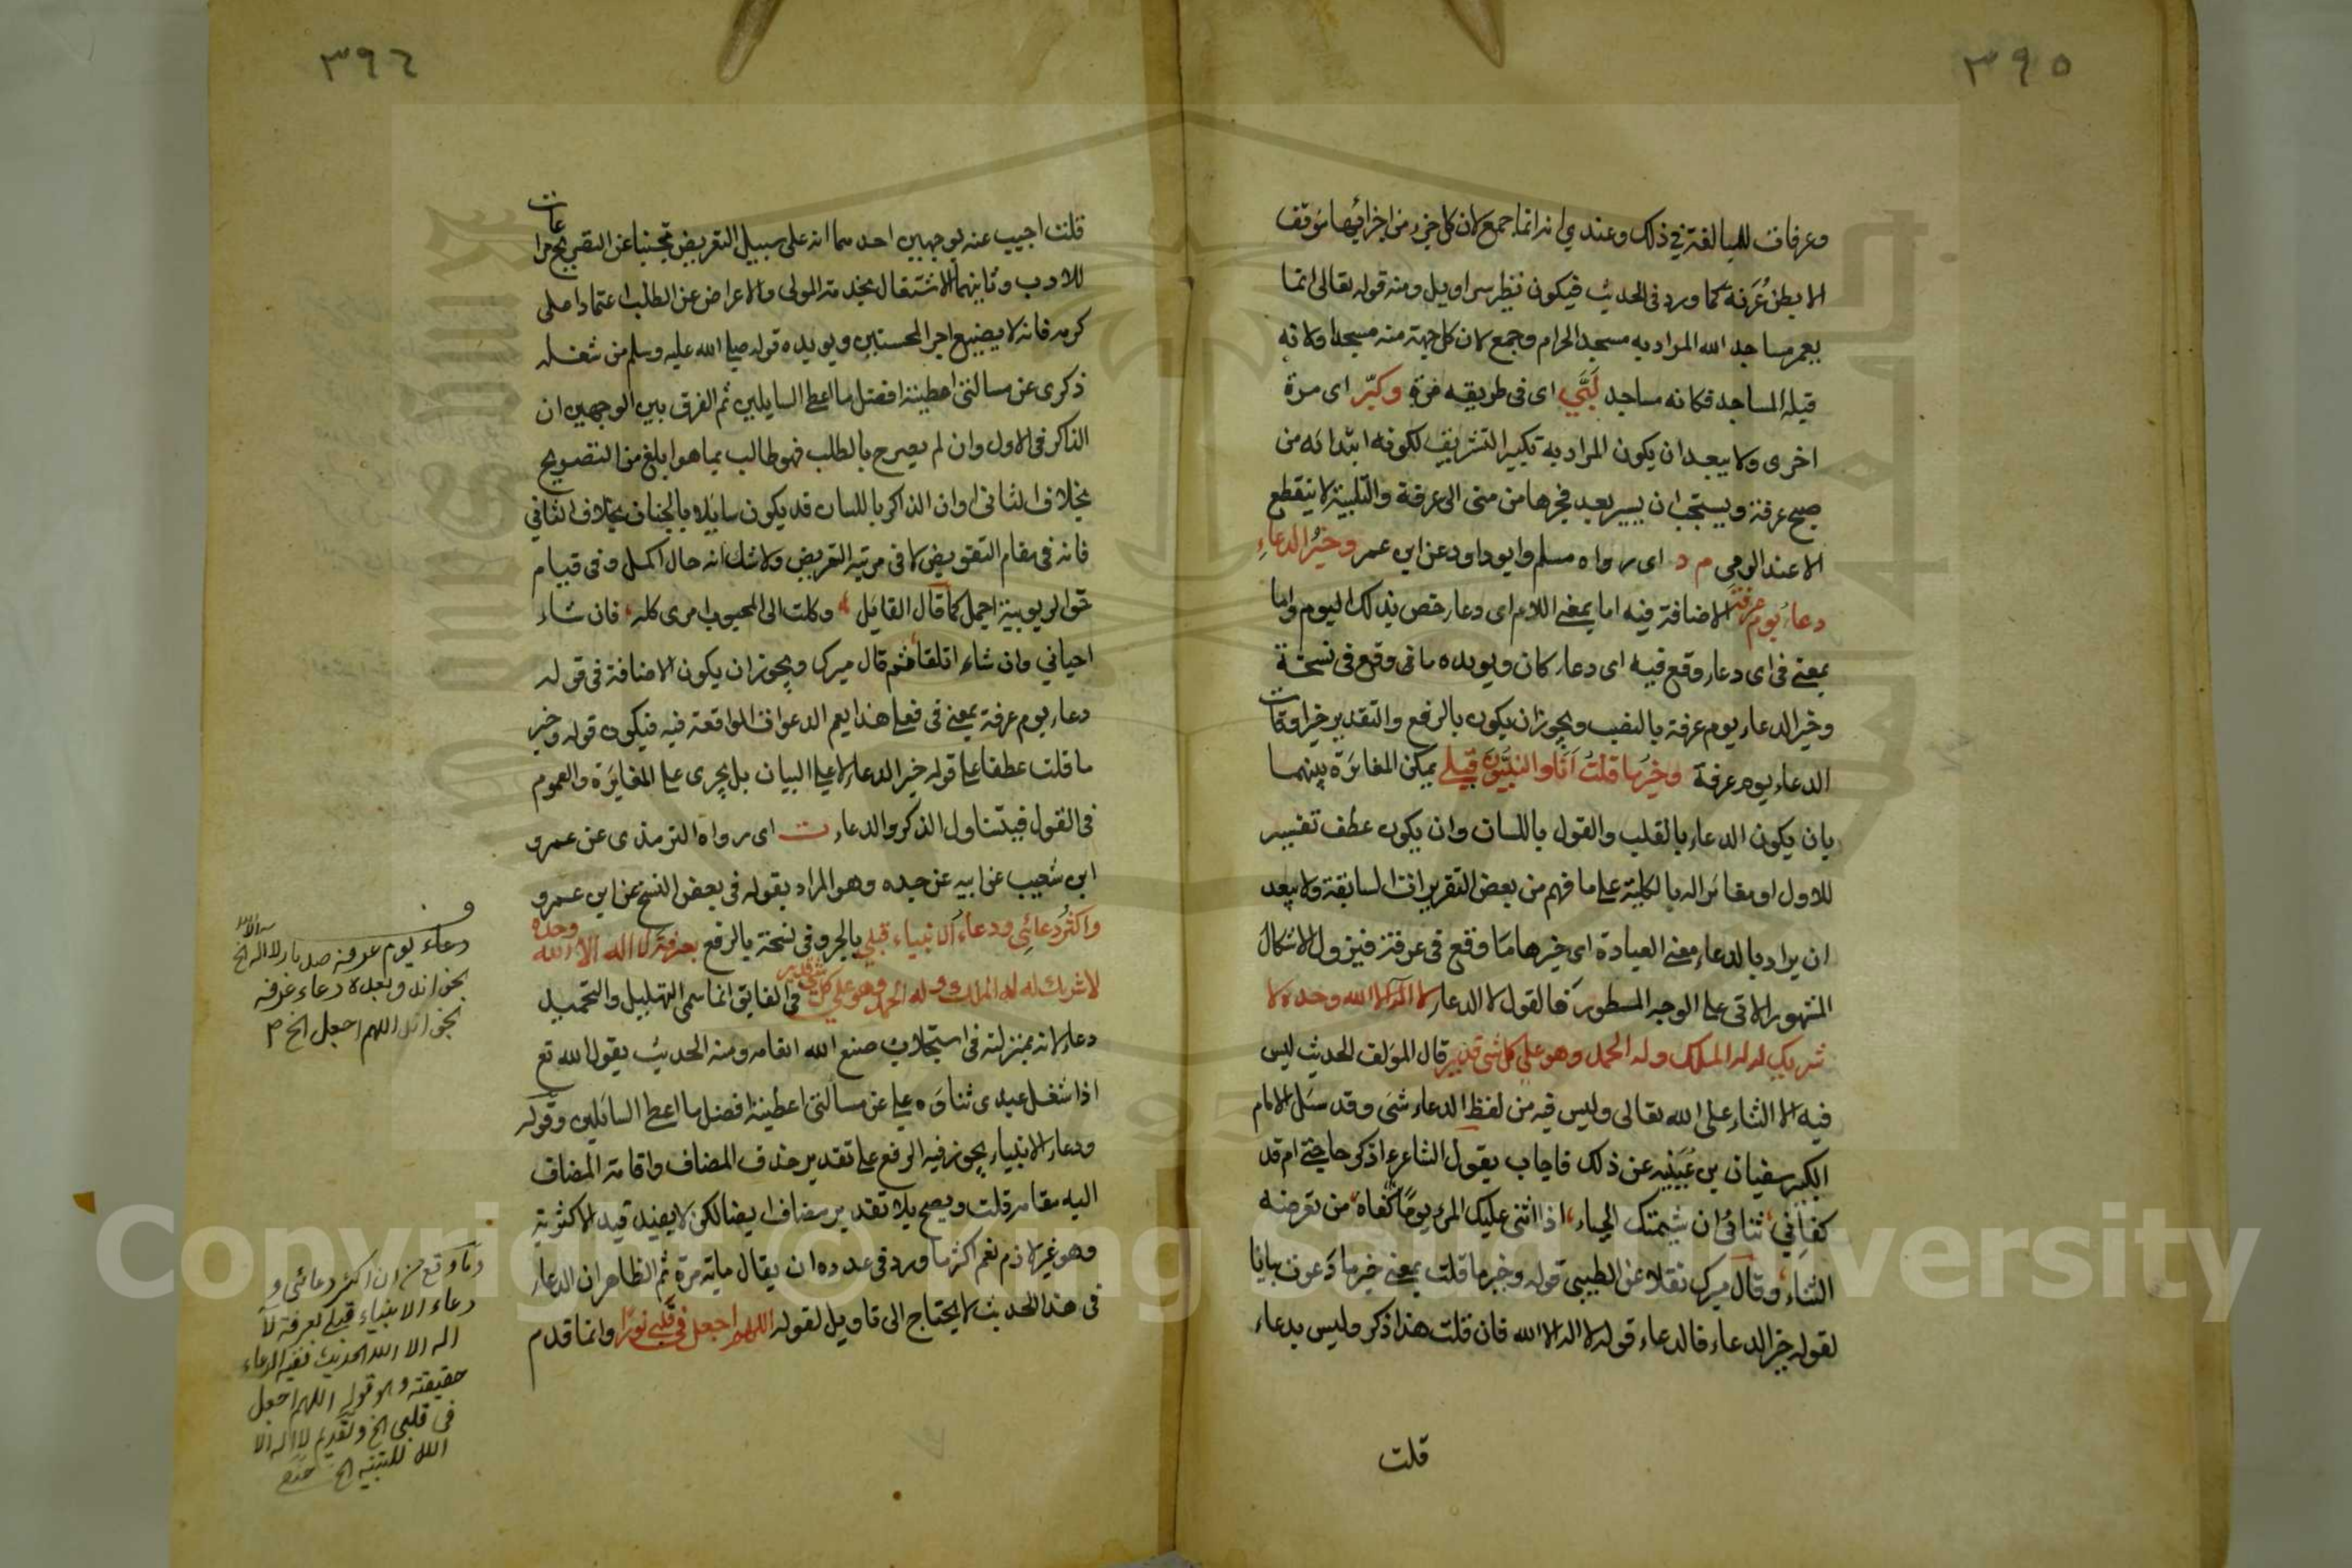 ٣٩٥
وعرفات للمبالغة في ذلك وعندي انه انما جمع لان كل جزء من اجزائها موقف
الا بطن عرنة كما ورد في الحديث فيكون نظير سراويل ومنه قوله تعالى انما
يعمر مساجد الله المراد به مسجد الحرام وجمع لان كل جهة منه مسجد اولانه
قبلة المساجد فكانه مساجد لَبَّي اى فى طريقه مرة وكبّر اى مرة
اخرى ولا يبعد ان يكون المراد به تكبير التشريق لكونه ابتدائه من
صبح عرفة ويستحب ان يسير بعد فجرها من منى الى عرفة والتلبية لا ينقطع
الا عند الرمي م د اى رواه مسلم وابو داود عن ابن عمر وخيرُ الدعاءِ
دعاءُ يوم عرفة الاضافة فيه اما بمعنى اللام اى دعاء خص بذلك اليوم واما
بمعنى فى اى دعاء وقع فيه اى دعاء كان ويويده ما فى وقع فى نسخة
وخير الدعاء يوم عرفة بالنصب ويجوز ان يكون بالرفع والتقدير خير اوقات
الدعاء يوم عرفة وخيرُ ما قلتُ اَنَا والنبيُّون قَبلى يمكن المغائرة بينهما
بان يكون الدعاء بالقلب والقول باللسان وان يكون عطف تفسير
للاول او مغائر له بالكلية على ما فهم من بعض التقريرات السابقة ولا يبعد
ان يراد بالدعاء معنى العبادة اى خيرها ما وقع فى عرفة فيزول الاشكال
المشهور الاتى على الوجه المسطور فالقول لا الدعاء لا اله الا الله وحده لا
شريك له له الملك وله الحمد وهو على كل شئ قدير قال المولف لحديث ليس
فيه الا الثناء على الله تعالى وليس فيه من لفظ الدعاء شئ وقد سئل الامام
الكبير سفيان بن عيينة عن ذلك فاجاب بقول الشاعر ء اذكر حاجتى ام قد
كفانى، ثنائى ان شيمتك الحياء، اذا اثنى عليك المرء يومًا كفاه، من تعرضه
الثناء، وقال ميرك نقلا عن الطيبى قوله وخير ما قلت بمعنى خير ما دعوت بيانا
لقوله خير الدعاء فالدعاء قوله لا اله الا الله فان قلت هذا ذكر وليس بدعاء
قلت
٣٩٦
قلت اجيب عنه بوجهين احدهما انه على سبيل التعريض تجنبا عن التصريح مراعات
للادب وثانيهما الاشتغال بخدمة المولى والاعراض عن الطلب اعتمادا على
كرمه فانه لا يضيع اجر المحسنين ويويده قوله صلى الله عليه وسلم من شغله
ذكرى عن مسالتى اعطيته افضل ما اعطى السايلين ثم الفرق بين الوجهين ان
الذاكر فى الاول وان لم يصرح بالطلب فهو طالب بما هو ابلغ من التصريح
بخلاف الثانى اوان الذاكر باللسان قد يكون سايلا بالجنان بخلاف الثاني
فانه فى مقام التفويض لا فى مرتبة التعريض ولا شك انه حال اكمل وفى قيام
حق الربوبية اجمل كما قال القايل، وكلت الى المحبوب امرى كله، فان شاء
احيانى وان شاء اتلفا، ثم قال ميرك ويجوز ان يكون الاضافة فى قوله
دعاء يوم عرفة بمعنى فى فعلى هذا يعم الدعوات الواقعة فيه فيكون قوله وخير
ما قلت عطفا على قوله خير الدعاء لا على البيان بل يجرى على المغايرة والعموم
فى القول فيتناول الذكر والدعاء ت اى رواه الترمذى عن عمرو
ابن شعيب عن ابيه عن جده وهو المراد بقوله فى بعض النسخ عن ابن عمرو
واكثرُ دعائِى ودعاءُ الانبياء قبلي بالجر وفى نسخة بالرفع بعرفة لا اله الا الله وحده
لا شريك له له الملك وله الحمد وهو على كل شئ قدير فى الفايق انما سمى التهليل والتحميد
دعاء لانه بمنزلته فى استجلاب صنع الله انعامه ومنه الحديث يقول الله تع
اذا شغل عبدى ثناؤه على عن مسالتى اعطيته افضل ما اعطى السائلين وقوله
ودعاء الانبياء يجوز فيه الرفع على تقدير حذف المضاف واقامة المضاف
اليه مقامه قلت ويصح بلا تقدير مضاف ايضا لكن لا يفيد قيد الاكثرية
وهو غير لازم نعم اكثر ما ورد فى عدده ان يقال ماية مرة ثم الظاهر ان الدعاء
فى هذا الحديث لا يحتاج الى تاويل لقوله اللهم اجعل فى قلبى نورًا وانما قدم
دعاء يوم عرفة صدره لا اله الخ
دعاء عرفة
اللهم اجعل الخ
وما وقع من ان اكثر دعائى و
دعاء الانبياء قبلى بعرفة لا
اله الا الله الحديث ففيه الدعاء
حقيقته وهو قوله اللهم اجعل
فى قلبى الخ وتقديم لا اله الا
الله للتنبيه الخ
Copyright © King Saud University